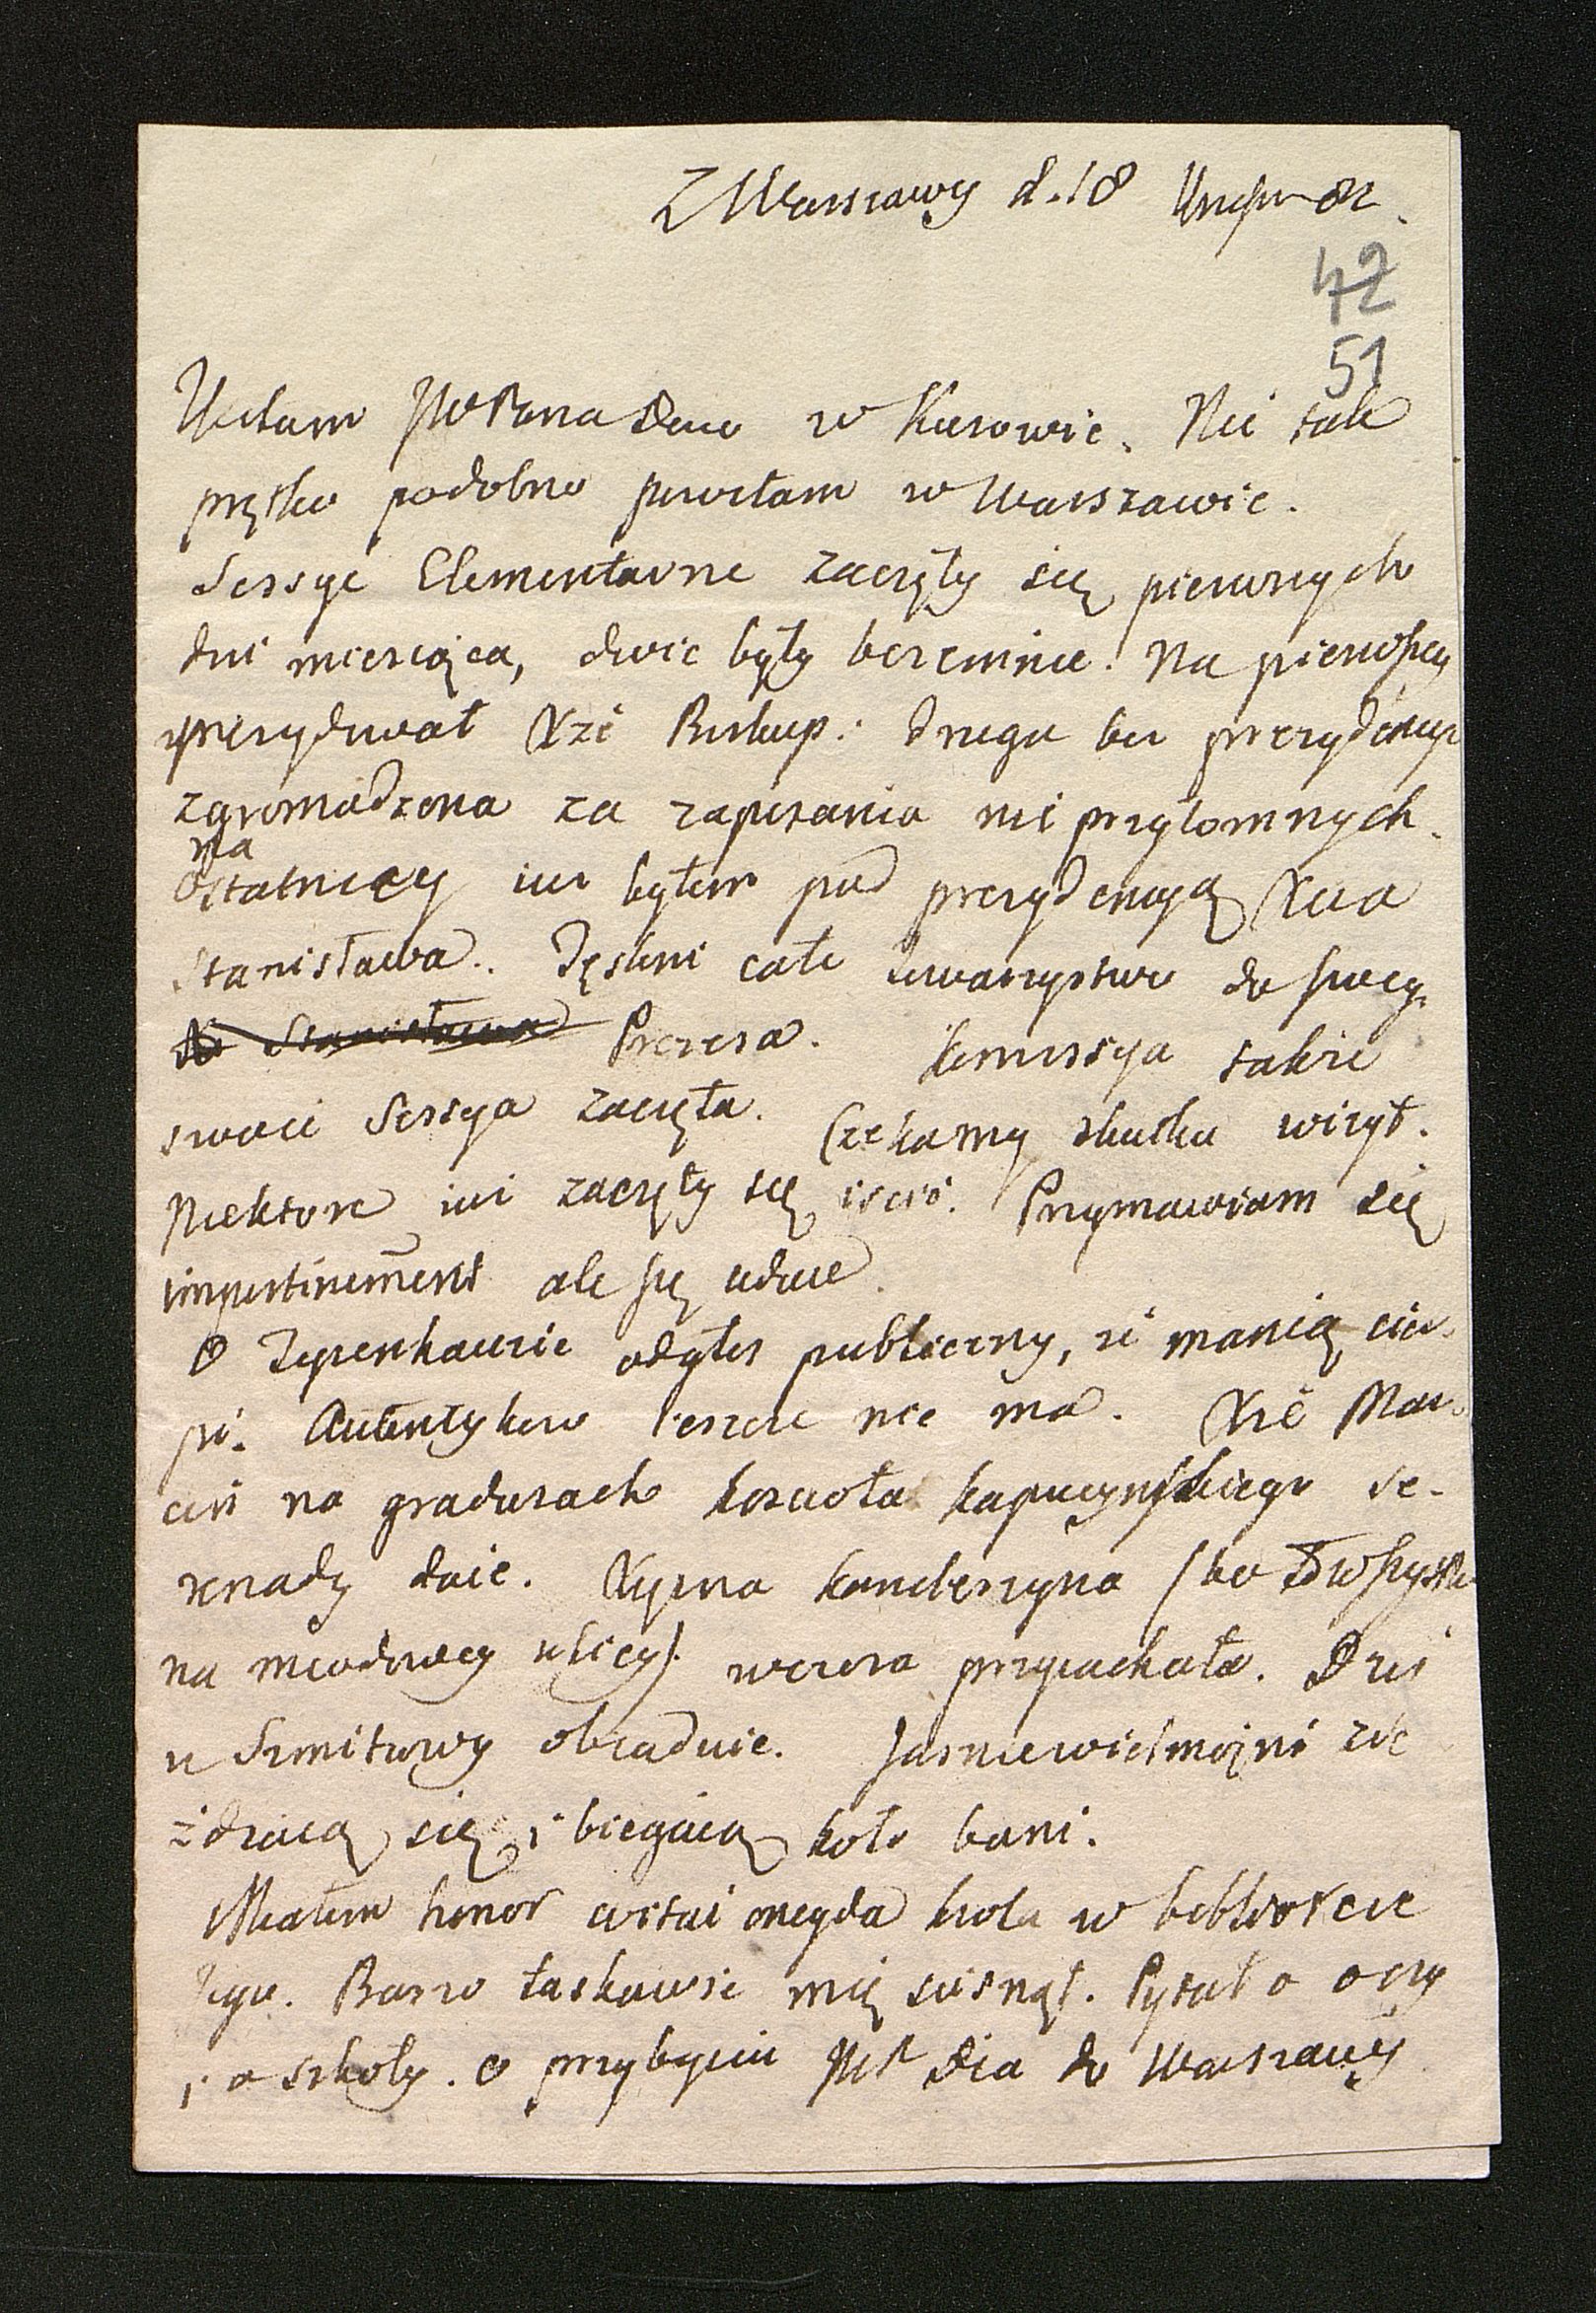 Z Warszawy d. 18 82.
42
51
Witam JWPana Dna w Kurowie. Nie tak
prętko podobno powitam w Warszawie.
Sessye Elementarne zaczęły się pierwszych
dni miesiąca, dwie były bezemnie. Na pierwszey
prezydował Xże Biskup: druga bez prezydencyi
zgromadzona za zapisania nieprzytomnych.
na
Ostatniey iuż byłem pod prezydencyą Xcia
Stanisława.. Tęskni całe towarzystwo do swego
Stanisława Prezesa. Komissya także
swoie Sessya zaczęła. Czekamy skutku wizyt.
Niektore iuż zaczęły się iścić. Przymawiam się
impertinement ale się udaie.
O Tyzenhauzie odgłos publiczny, że manią cier-
pi. Autentykow ieszcze nie ma. Xże Mar-
cin na gradusach koscioła kapucynskiego se-
renady daie. Xyżna kanclerzyna (bo to wszystko
na miodowey ulicy) wczora przyiachała. Dzis
u Szmitowy obiaduie. Jasniewielmożni zie-
żdzaią się, i biegaią koło bani.
Miałem honor witać onegda krola w bibliotece
Jego. Barzo łaskawie mię scisnął. Pytał o oczy
i o szkoły. o przybyciu JWP Dia do Warszawy